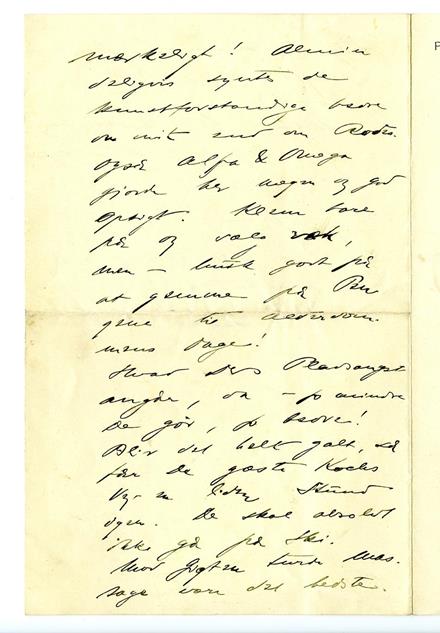 mærkeligt! Almin
deligvis syntes de
kunstforstandige bedre
om mit end om Rodes.
Ogsaa Alfa & Omega
gjorde her megen og god
opsigt. Klem bare
på og vælg væk,
men – husk godt på
at gemme på Pen
gene til alderdom
mens dage!
Hvad Deres Pladsangst
angår, da – jo mindre
De gør, jo bedre!
Blir det helt galt, så
før De gæste Kochs
igen. De skal absolut
ikke gå på Ski.
Mod Gigten turde Mas-
sage være det bedste.
P